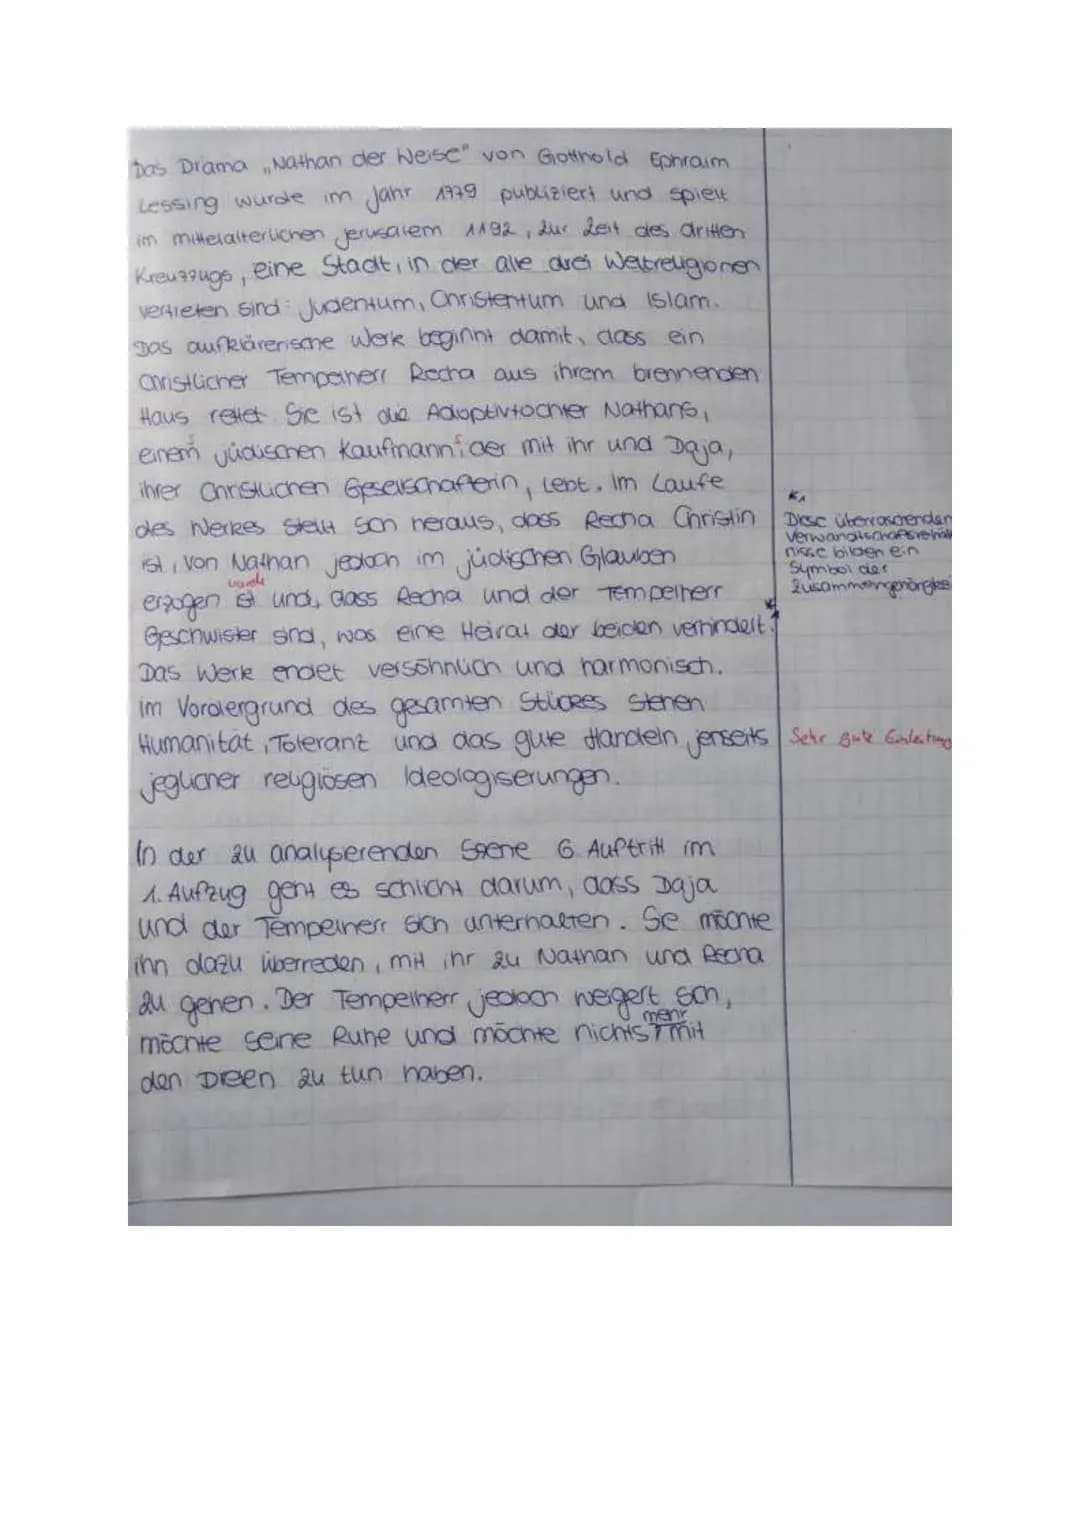 Das Drama „Nathan der Weise" von Gotthold Ephraim
Lessing wurde im Jahr 1779 publiziert und spielt
im mittelalterlichen Jerusalem 1192, zur Zeit des dritten
Kreuzzugs, eine Stadt, in der alle drei Weltreligionen
vertreten sind: Judentum, Christentum und Islam.
Das aufklärerische Werk beginnt damit, dass ein
christlicher Tempelherr Recha aus ihrem brennenden
Haus rettet. Sie ist die Adoptivtochter Nathans,
einem jüdischen Kaufmann, der mit ihr und Daja,
ihrer christlichen Gesellschafterin, lebt. Im Laufe
des Werkes stellt sich heraus, dass Recha Christin
ist, von Nathan jedoch im jüdischen Glauben
wurde
erzogen ist und, dass Recha und der Tempelherr
Geschwister sind, was eine Heirat der beiden verhindert.
Das Werk endet versöhnlich und harmonisch.
Im Vordergrund des gesamten Stückes stehen
Humanität, Toleranz und das gute Handeln jenseits
jeglicher religiösen Ideologisierungen.
Diese überraschenden
Verwandtschaftsverhält
nisse bilden ein
Symbol der
Zusammengehörigkei
Sehr gute Einleitung
In der zu analysierenden Szene 6. Auftritt im
1. Aufzug geht es schlicht darum, dass Daja
und der Tempelherr sich unterhalten. Sie möchte
ihn dazu überreden, mit ihr zu Nathan und Recha
zu gehen. Der Tempelherr jedoch weigert sich,
mehr
möchte seine Ruhe und möchte nichts mit
den Dreen zu tun haben.